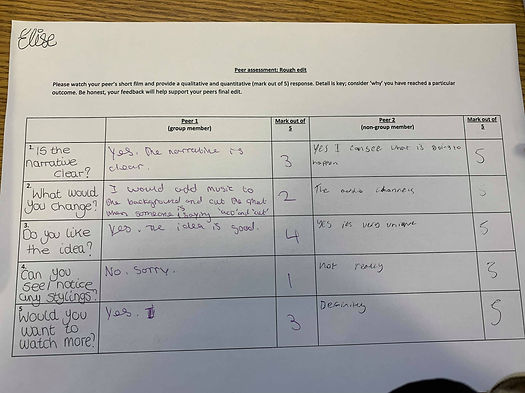 Elise
Peer assessment: Rough edit
Please watch your peer's short film and provide a qualitative and quantitative (mark out of 5) response. Detail is key; consider 'why' you have reached a particular
outcome. Be honest, your feedback will help support your peers final edit.
Peer 1
(group member)
Mark out of
5
Peer 2
(non-group member)
Mark out of
5
1. Is the
narrative
clear?
Yes. The narrative is
clear.
3
Yes I can see what is going to
happen
5
2. What would
you change?
I would add music to
the background and cut the shot
when someone is saying 'and cut'
2
The audio channels
3. Do you like
the idea?
Yes. The idea is good.
4
Yes its very unique
5
4. Can you
see/notice
any stylings?
No. Sorry.
1
Not really
3
5. Would you
want to
watch more?
Yes.
3
Defininley
5